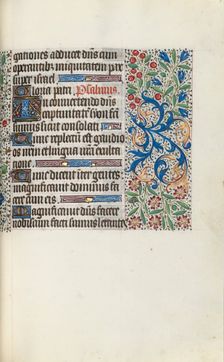 gationes adducet dñs cum
operantibus iniquitatem pax
super israel
Gloria patri. Psalmus.
In convertendo dñs
captivitatem sion fac
ti sumus sicut consolati
Tunc repletum est gaudio
os nrm et lingua nrã exulta
cione
Tunc dicent inter gentes
magnificavit dominus fa
cere cum eis
Magnificavit dñs facere
nobiscum facti sumus letantes